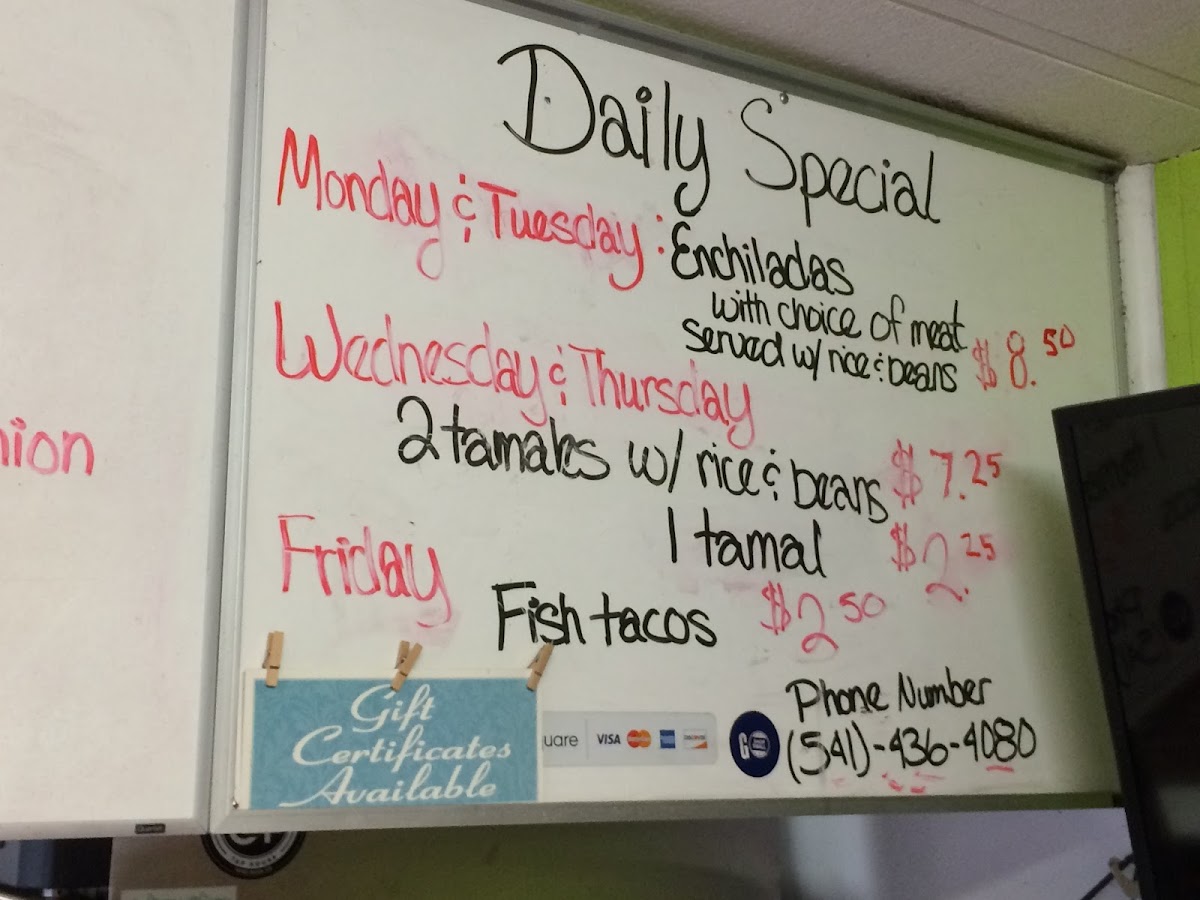 Daily Special
Monday & Tuesday: Enchiladas
with choice of meat
served w/ rice & beans $8.50
Wednesday & Thursday
2 tamales w/ rice & beans $7.25
1 tamal $2.25
Friday
Fish tacos $2 50
nion
Gift
Certificates
Available
uare VISA DISCOVER
Phone Number
(541)-436-4080
TAP HOUSE